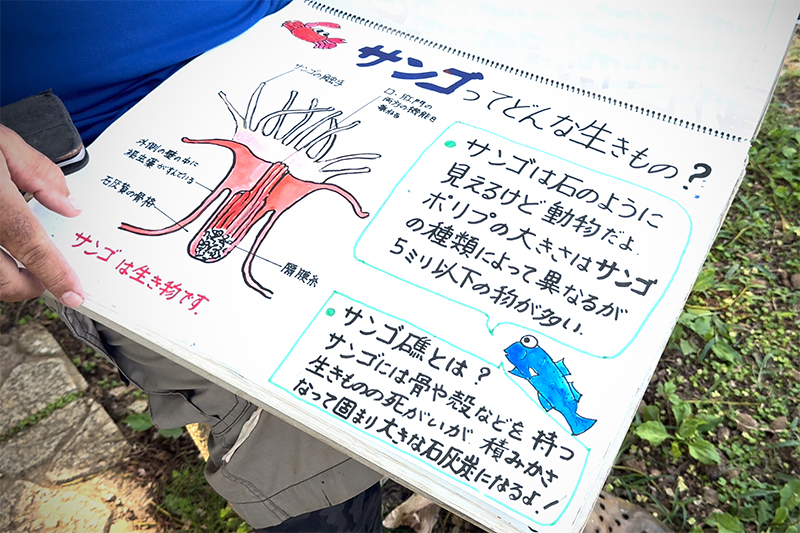 サンゴってどんな生きもの?
サンゴの触手
口、肛門の
両方の機能を
兼ねる
外側の壁の中に
褐虫藻がすんでいる
石灰質の骨格
隔膜糸
サンゴは生き物です.
サンゴは石のように
見えるけど動物だよ.
ポリプの大きさはサンゴ
の種類によって異なるが
5ミリ以下の物が多い.
サンゴ礁とは?
サンゴには骨や殻などを持つ
生きものの死がいが積みかさ
なって固まり大きな石灰炭になるよ!